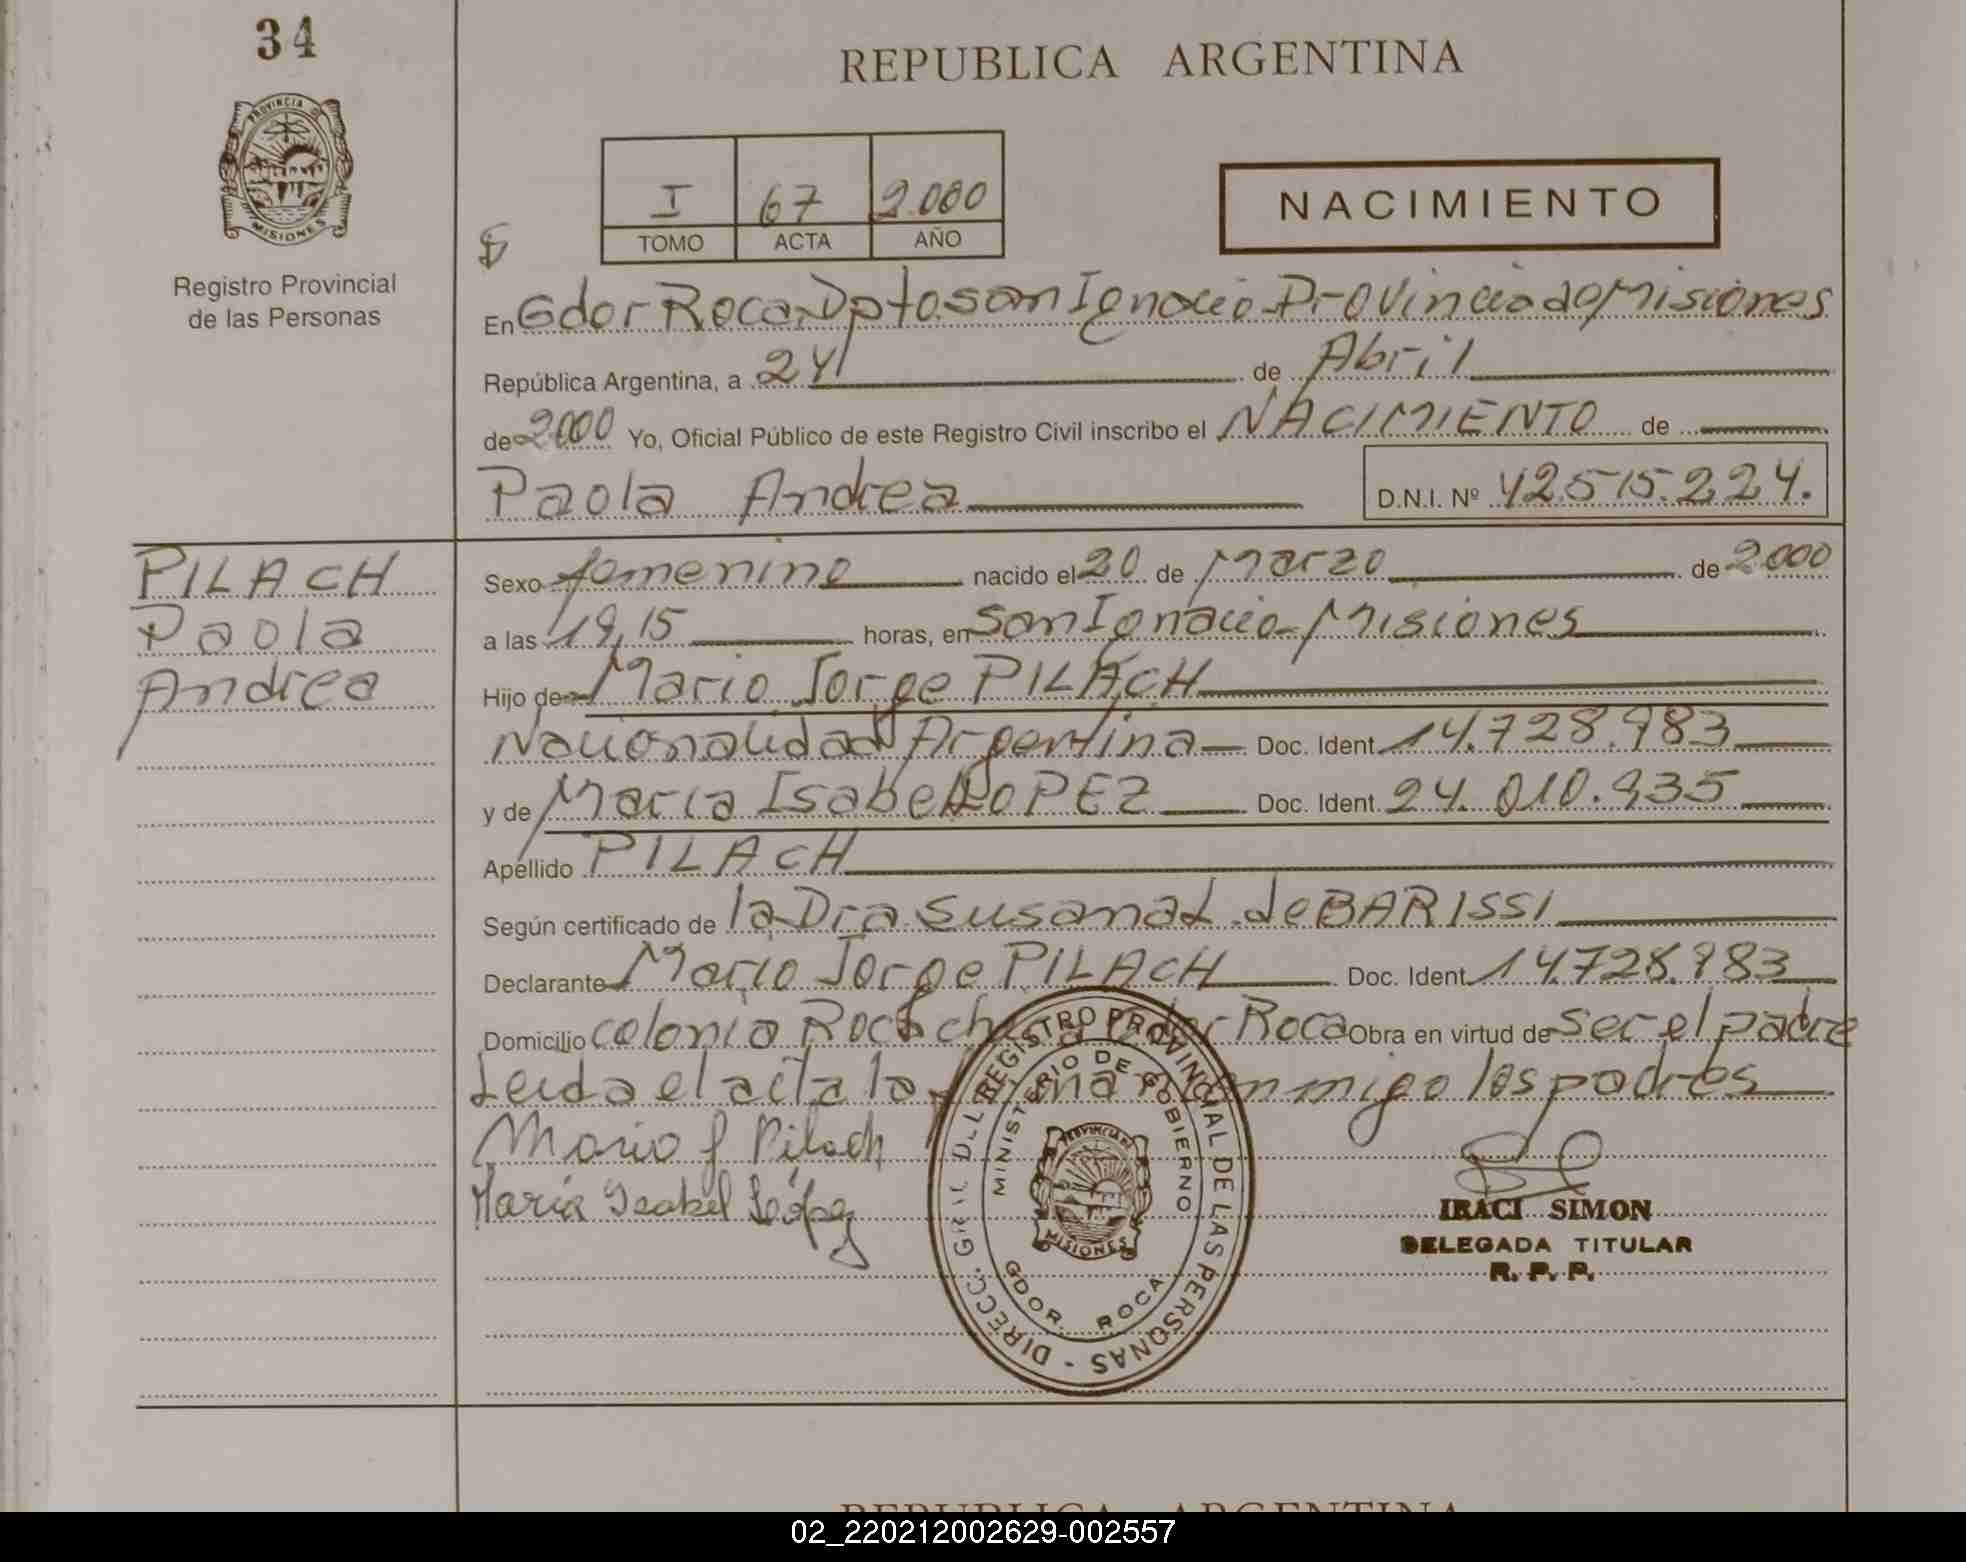 34
REPUBLICA ARGENTINA
PROVINCIA DE
MISIONES
Registro Provincial
de las Personas
I 67 2.000
TOMO ACTA AÑO
NACIMIENTO
En Gdor Roca Dpto san Ignacio Provincia de Misiones
República Argentina, a 24 de Abril
de 2000 Yo, Oficial Público de este Registro Civil inscribo el NACIMIENTO de
Paola Andrea D.N.I. Nº 42.515.224.
PILACH
Paola
Andrea
Sexo femenino nacido el 20 de Marzo de 2.000
a las 19,15 horas, en San Ignacio-Misiones
Hijo de Mario Jorge PILACH
Nacionalidad Argentina Doc. Ident. 14.728.983
y de María Isabel LOPEZ Doc. Ident. 24.010.935
Apellido PILACH
Según certificado de la Dra Susana L. de BARISSI
Declarante Mario Jorge PILACH Doc. Ident. 14.728.983
Domicilio colonia Roca Gdor Roca Obra en virtud de ser el padre
Leida el acta la firman conmigo los padres
Mario J Pilach
María Isabel López
DIRECC. GRAL DEL REGISTRO PROVINCIAL DE LAS PERSONAS -
MINISTERIO DE GOBIERNO
PROVINCIA DE
MISIONES
GDOR. ROCA
IRACI SIMON
DELEGADA TITULAR
R. P. P.
REPUBLICA ARGENTINA
02_220212002629-002557